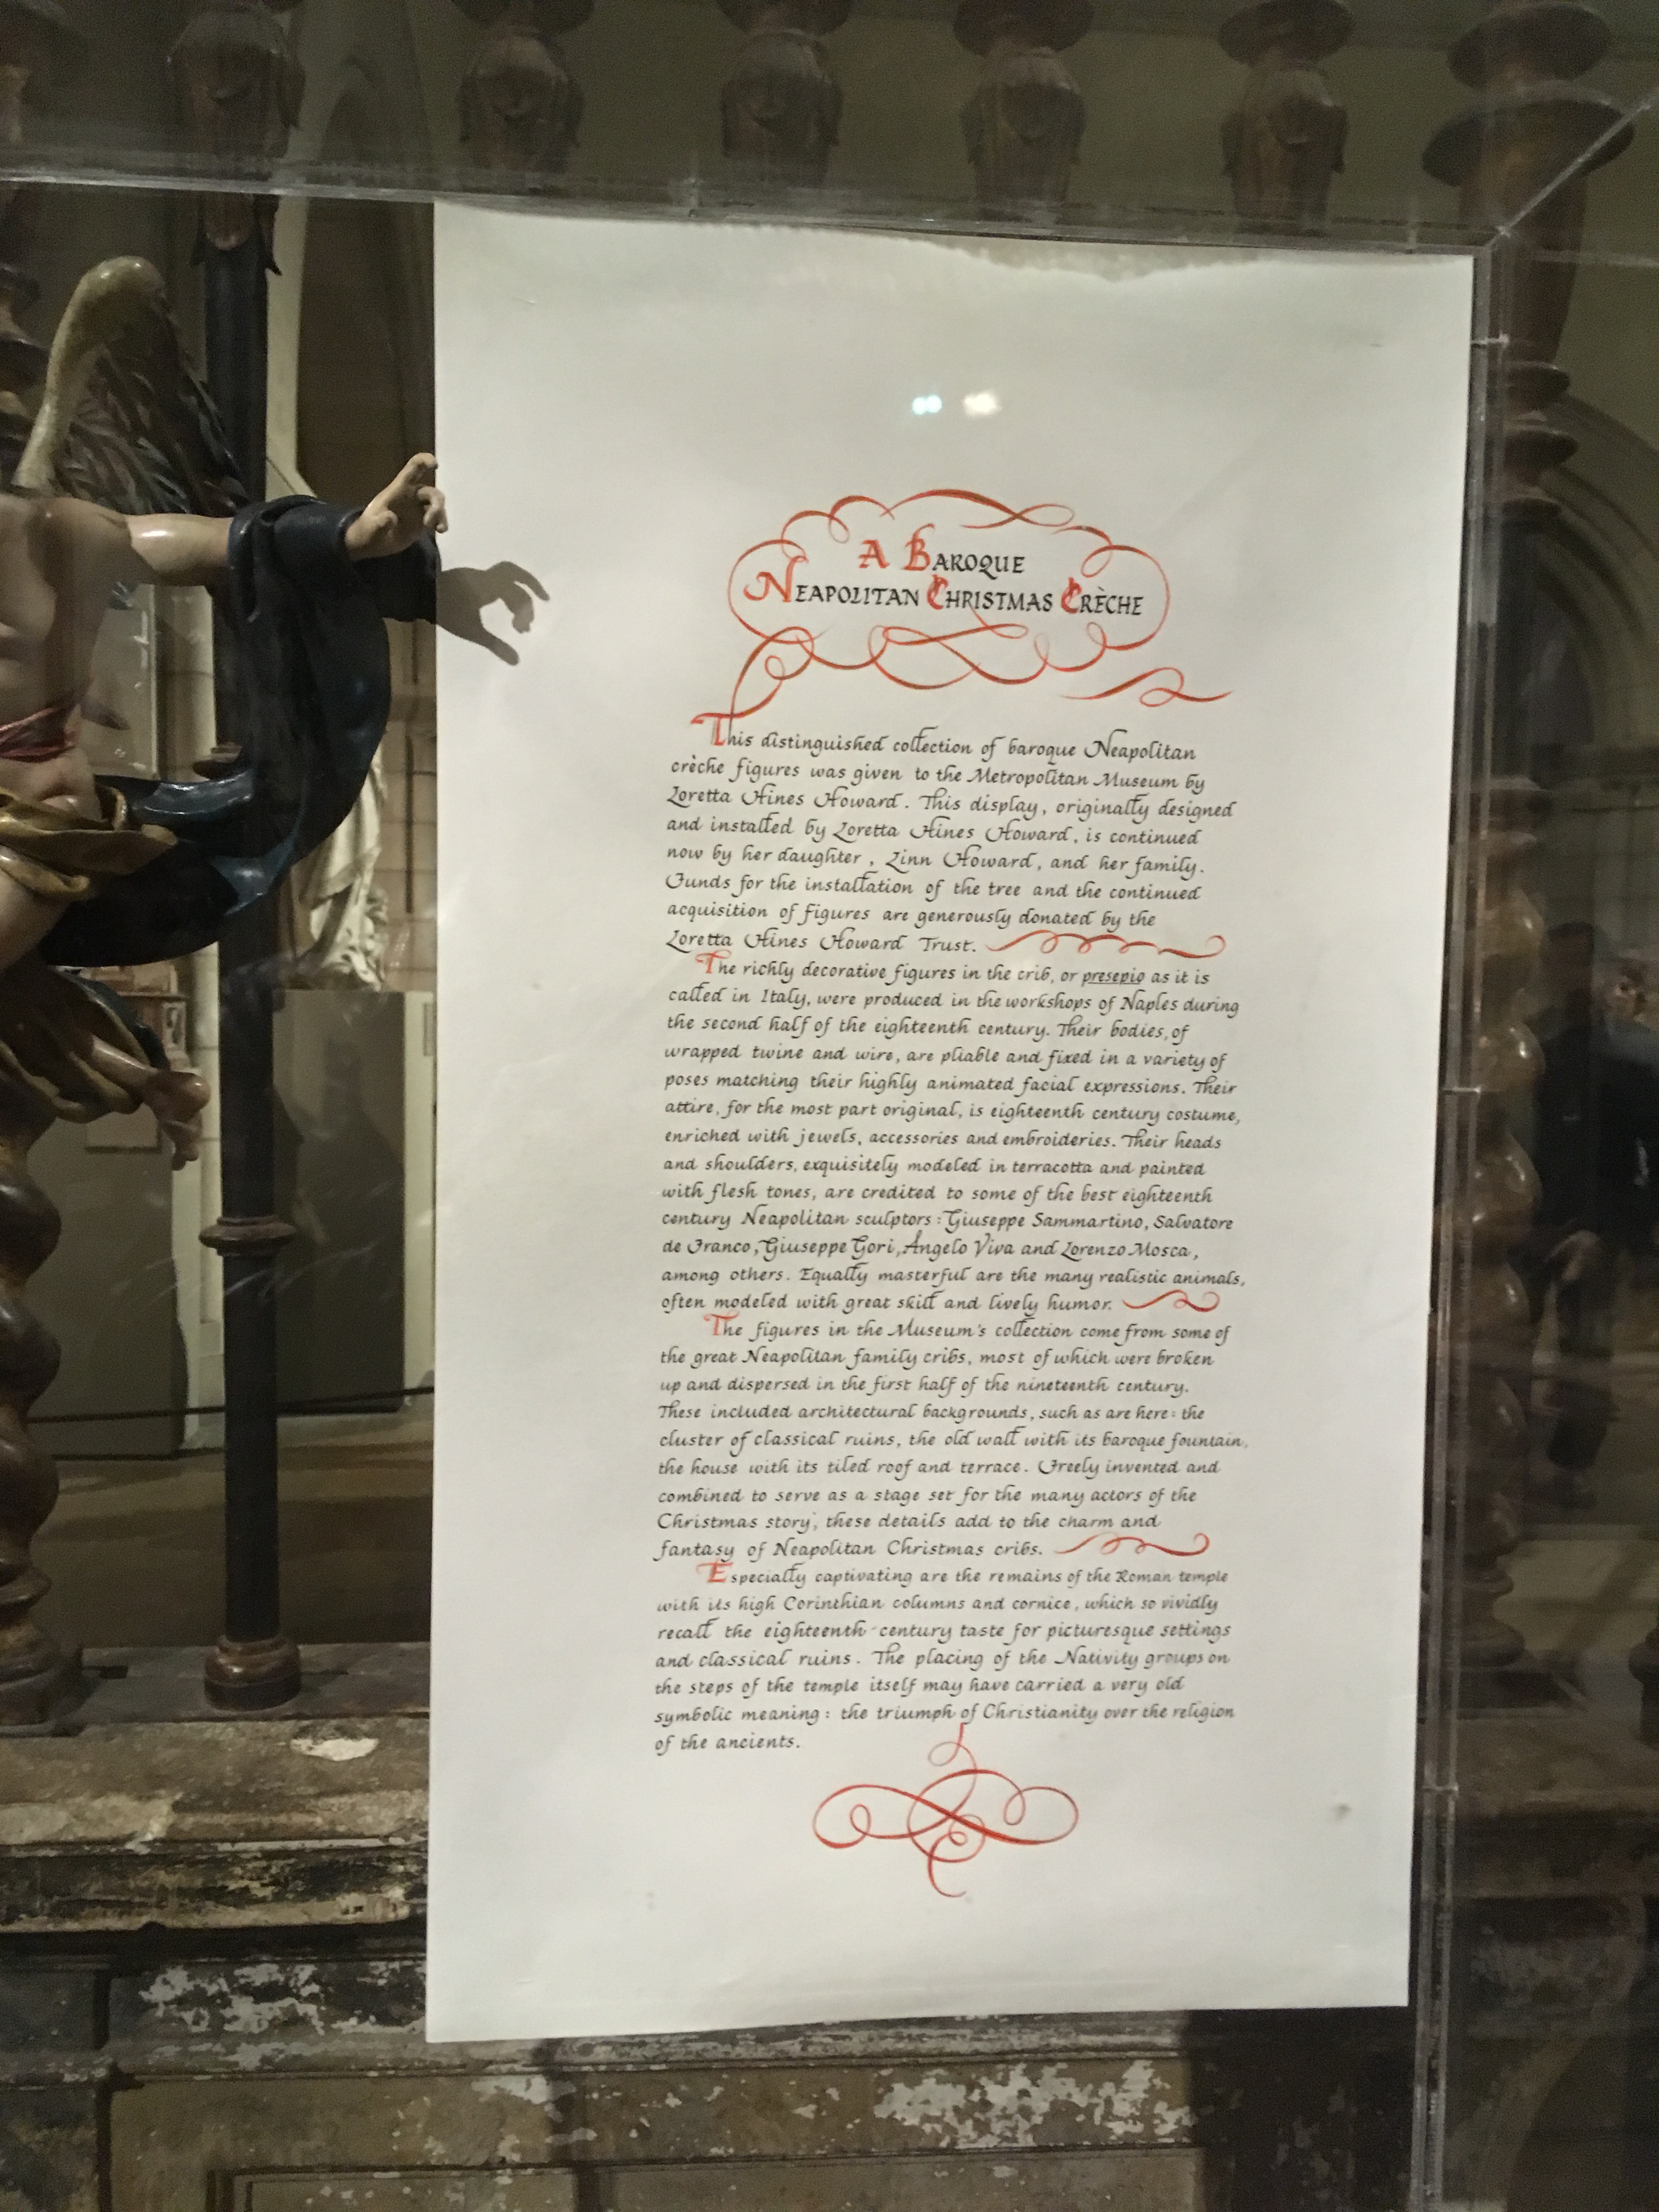 A BAROQUE
NEAPOLITAN CHRISTMAS CRÈCHE
This distinguished collection of baroque Neapolitan
crèche figures was given to the Metropolitan Museum by
Loretta Hines Howard. This display, originally designed
and installed by Loretta Hines Howard, is continued
now by her daughter, Linn Howard, and her family.
Funds for the installation of the tree and the continued
acquisition of figures are generously donated by the
Loretta Hines Howard Trust.
The richly decorative figures in the crib, or presepio as it is
called in Italy, were produced in the workshops of Naples during
the second half of the eighteenth century. Their bodies, of
wrapped twine and wire, are pliable and fixed in a variety of
poses matching their highly animated facial expressions. Their
attire, for the most part original, is eighteenth century costume,
enriched with jewels, accessories and embroideries. Their heads
and shoulders, exquisitely modeled in terracotta and painted
with flesh tones, are credited to some of the best eighteenth
century Neapolitan sculptors: Giuseppe Sammartino, Salvatore
de Franco, Giuseppe Gori, Angelo Viva and Lorenzo Mosca,
among others. Equally masterful are the many realistic animals,
often modeled with great skill and lively humor.
The figures in the Museum's collection come from some of
the great Neapolitan family cribs, most of which were broken
up and dispersed in the first half of the nineteenth century.
These included architectural backgrounds, such as are here: the
cluster of classical ruins, the old wall with its baroque fountain,
the house with its tiled roof and terrace. Freely invented and
combined to serve as a stage set for the many actors of the
Christmas story, these details add to the charm and
fantasy of Neapolitan Christmas cribs.
Especially captivating are the remains of the Roman temple
with its high Corinthian columns and cornice, which so vividly
recall the eighteenth-century taste for picturesque settings
and classical ruins. The placing of the Nativity groups on
the steps of the temple itself may have carried a very old
symbolic meaning: the triumph of Christianity over the religion
of the ancients.